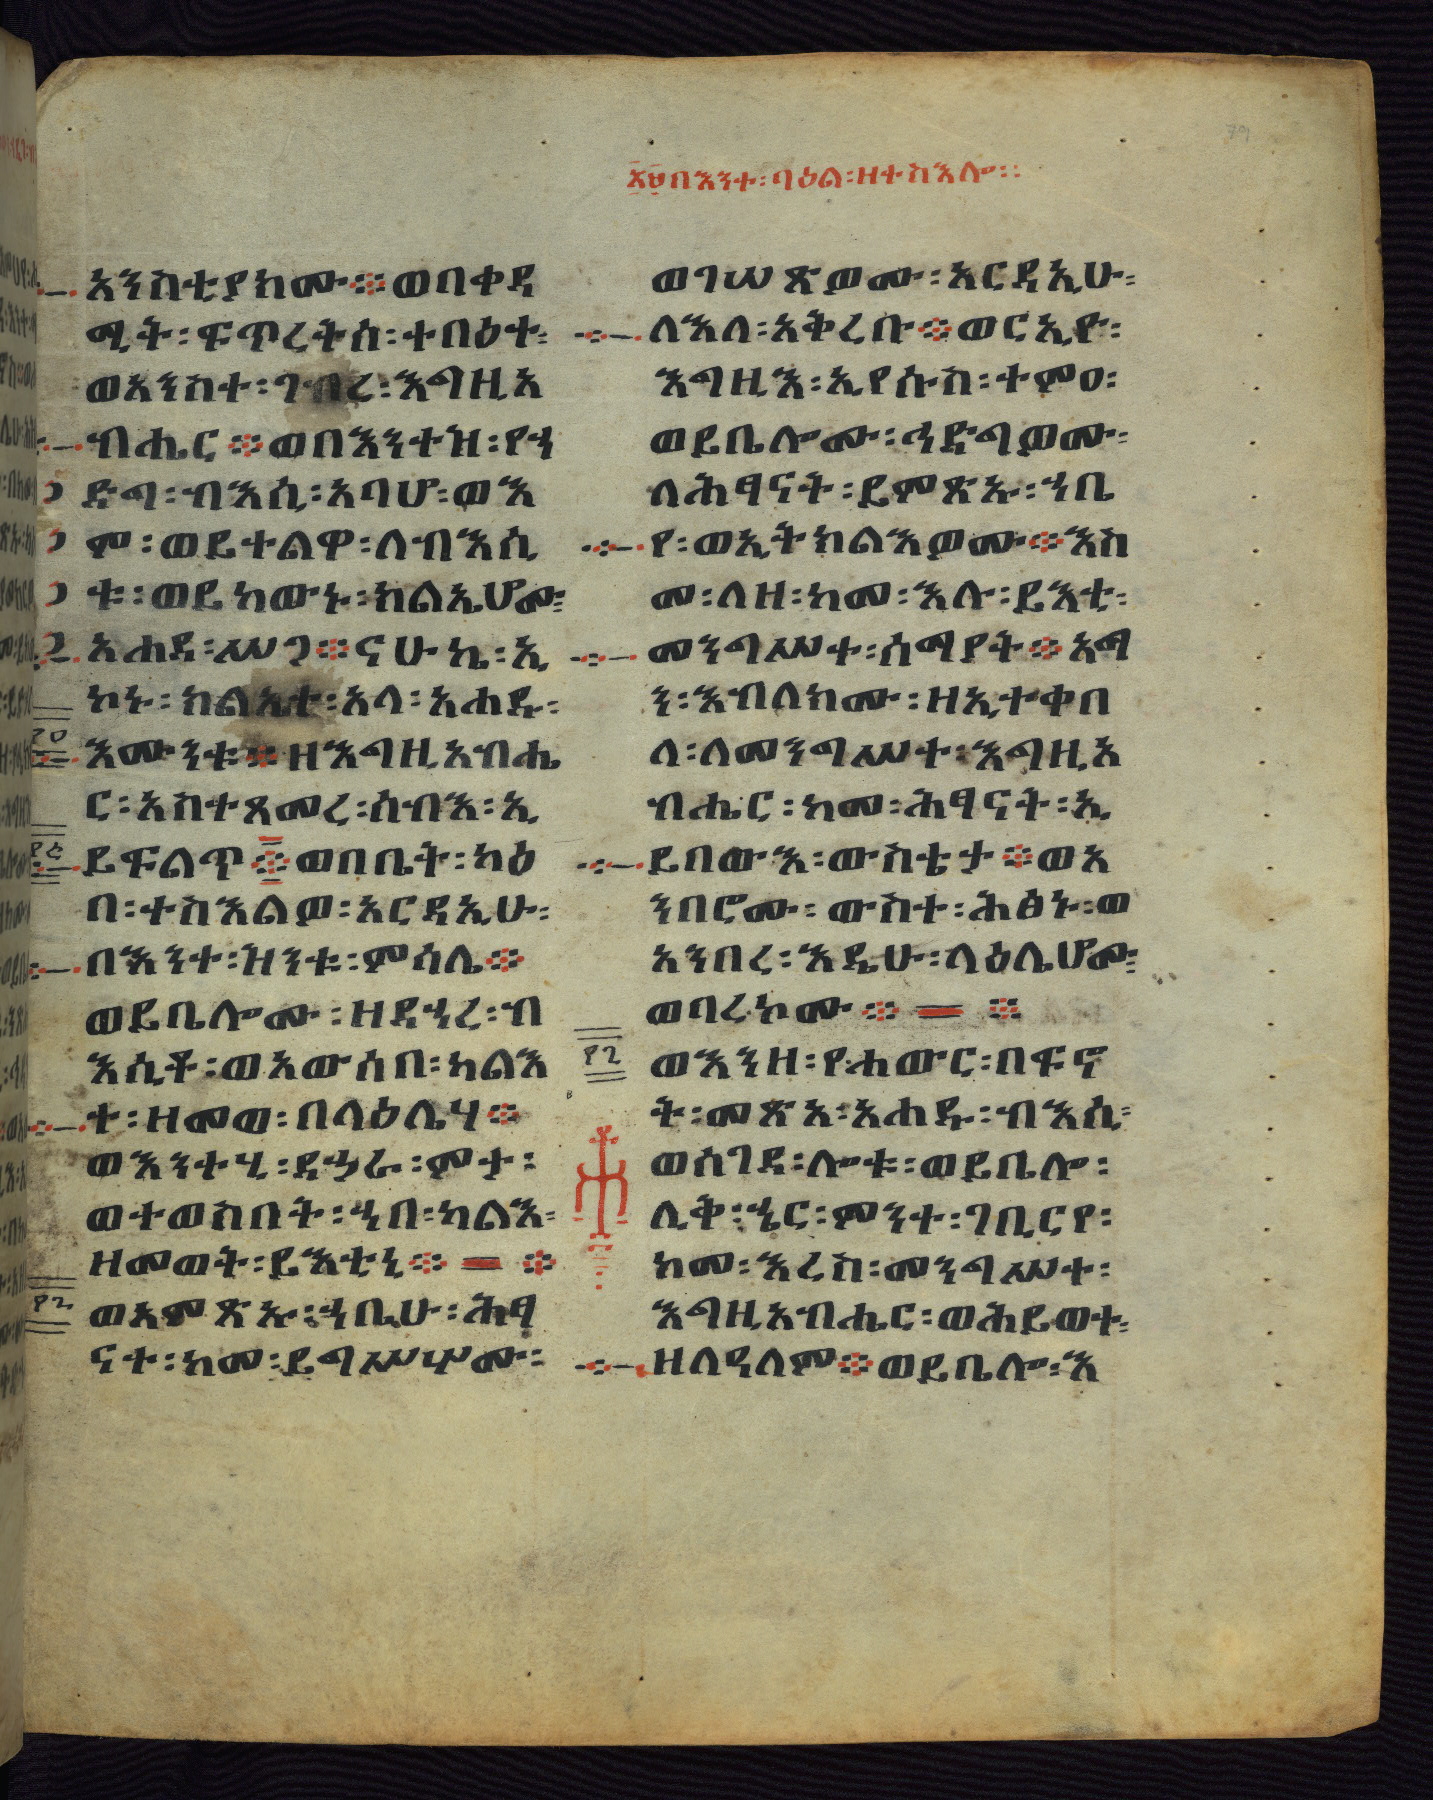 ፴፱በእንተ፡ባዕል፡ዘተስእሎ፡፡
አንስቲያክሙ፨ወበቀዳ
ሚት፡ፍጥረትሰ፡ተባዕተ፡
ወአንስተ፡ገብረ፡እግዚአ
ብሔር፨ወበእንተዝ፡የኀ
ድግ፡ብእሲ፡አባሆ፡ወእ
ሞ፡ወይተልዋ፡ለብእሲ
ቱ፡ወይከውኑ፡ክልኤሆሙ፡
አሐደ፡ሥጋ፨ናሁኬ፡ኢ
ኮኑ፡ክልኤተ፡አላ፡አሐዱ፡
እሙንቱ፨ዘእግዚአብሔ
ር፡አስተጻመረ፡ሰብእ፡ኢ
ይፍልጥ፨ወበቤት፡ካዕ
በ፡ተስእልዎ፡አርዳኢሁ፡
በእንተ፡ዝንቱ፡ምሳሌ፨
ወይቤሎሙ፡ዘደኀረ፡ብ
እሲቶ፡ወአውሰበ፡ካልእ
ተ፡ዘመወ፡በላዕሌሃ፨
ወእንተሂ፡ደኃራ፡ምታ፡
ወተወስበት፡ኀበ፡ካልእ፡
ዘመወት፡ይእቲኒ፨ ፨
፲፪
ወአምጽኡ፡ኀቤሁ፡ሕፃ
ናተ፡ከመ፡ይግሥሦሙ፡
ወገሠጽዎሙ፡አርዳኢሁ፡
ለእለ፡አቅረቡ፨ወርእዮ፡
እግዚእ፡ኢየሱስ፡ተምዐ፡
ወይቤሎሙ፡ኅድግዎሙ፡
ለሕፃናት፡ይምጽኡ፡ኀቤ
የ፡ወኢትክልእዎሙ፨እስ
መ፡ለዘ፡ከመ፡እሉ፡ይእቲ፡
መንግሥተ፡ሰማያት፨አማ
ን፡እብለክሙ፡ዘኢተቀበ
ላ፡ለመንግሥተ፡እግዚአ
ብሔር፡ከመ፡ሕፃናት፡ኢ
ይበውእ፡ውስቴታ፨ወአ
ንበሮሙ፡ውስተ፡ሕፅኑ፡ወ
አንበረ፡እዴሁ፡ላዕሌሆሙ፡
ወባረኮሙ፨ ፨
፲፪
ወእንዘ፡የሐውር፡በፍኖ
ት፡መጽአ፡አሐዱ፡ብእሲ፡
ወሰገደ፡ሎቱ፡ወይቤሎ፡
ሊቅ፡ኄር፡ምንተ፡ገቢርየ፡
ከመ፡እረስ፡መንግሥተ፡
እግዚአብሔር፡ወሕይወተ፡
ዘለዓለም፨ወይቤሎ፡እ